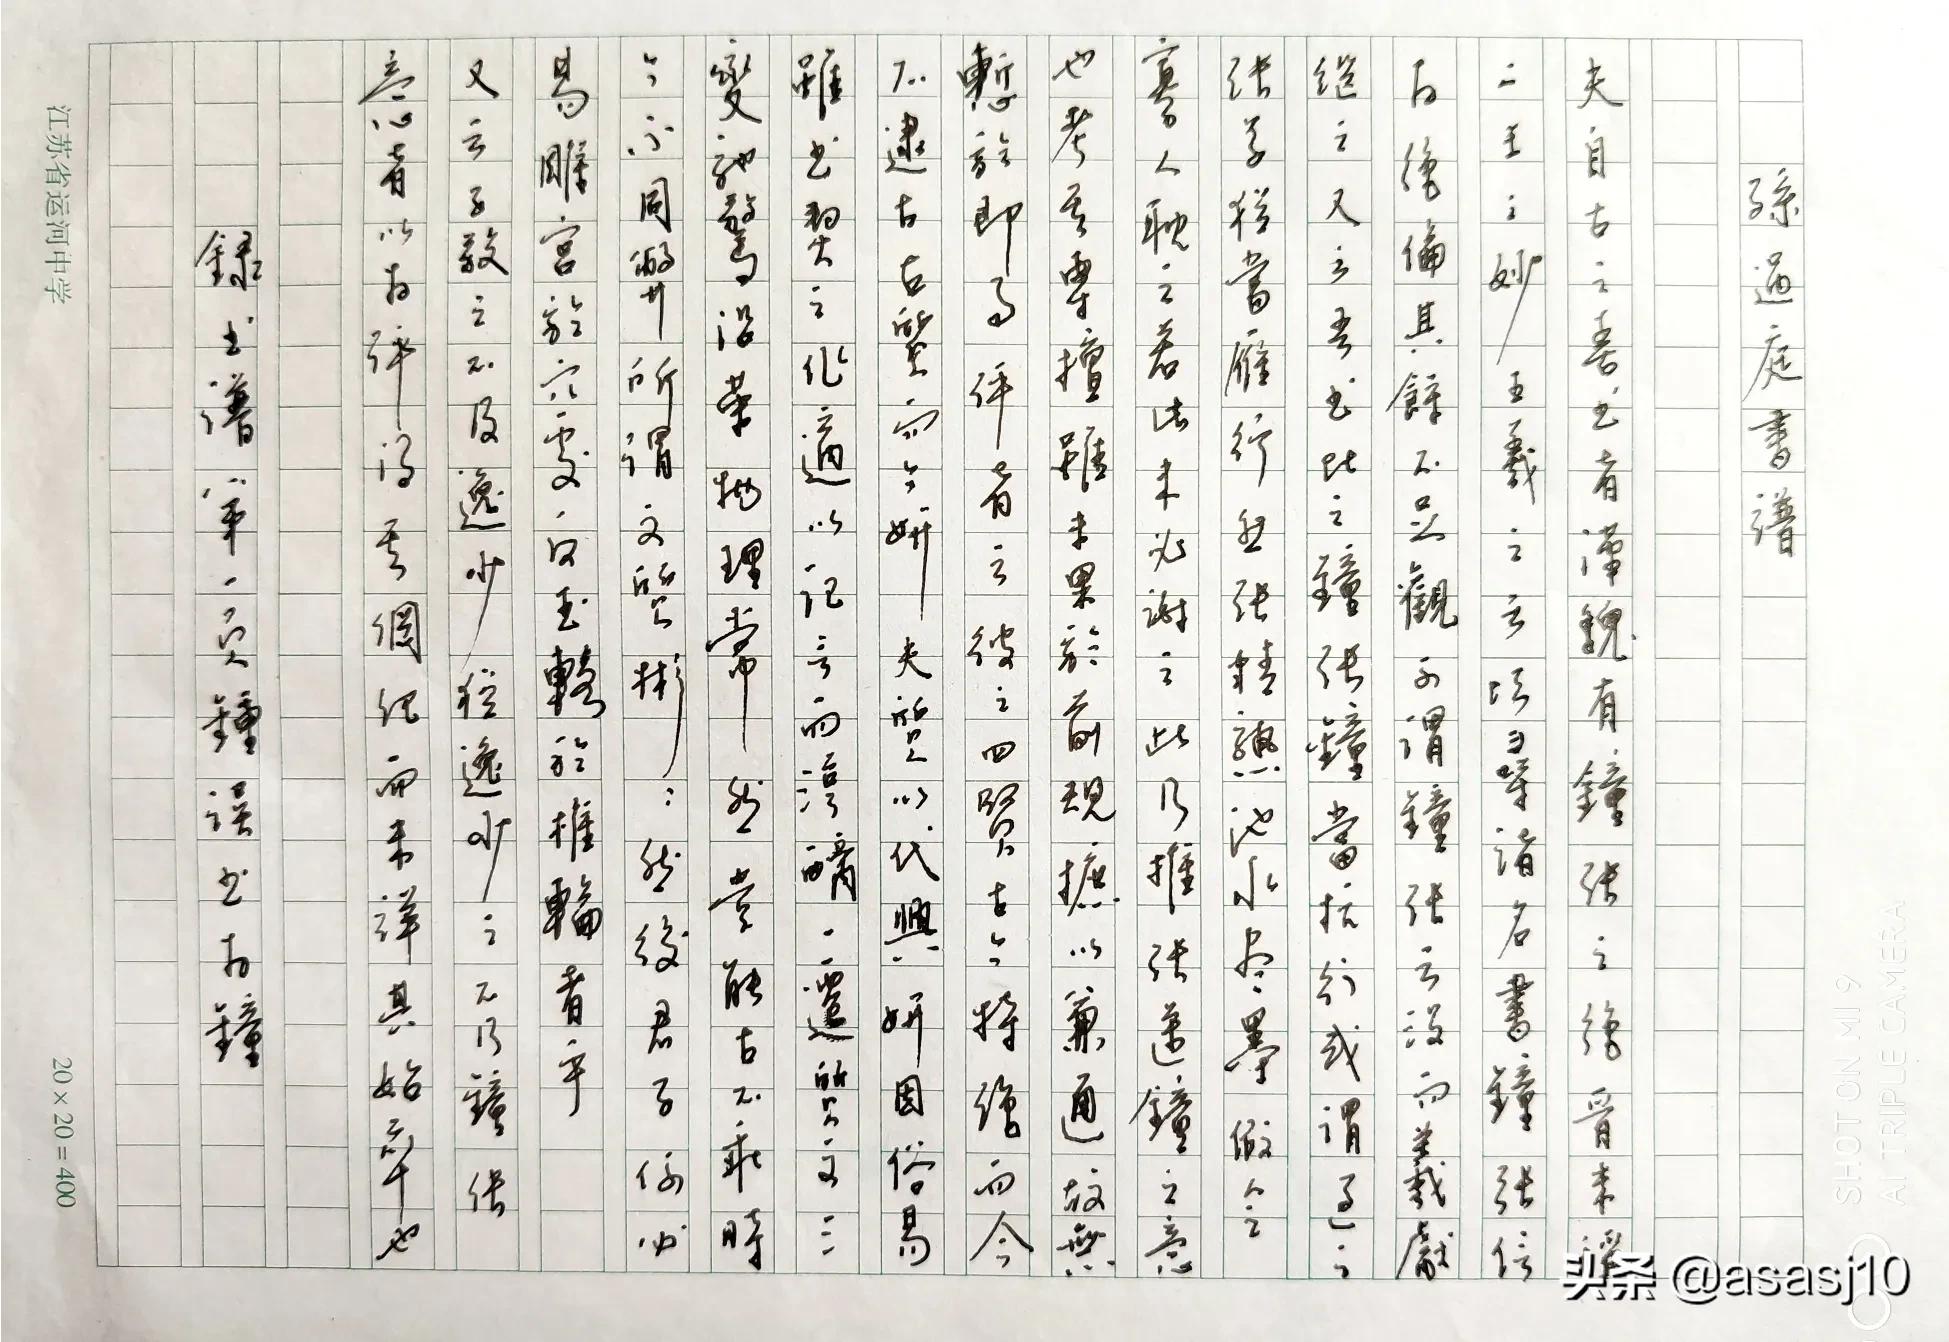 孫過庭書譜
夫自古之善書者漢魏有鍾張之絕晉末稱
二王之妙王羲之云頃尋諸名書鐘張信
為絕倫其餘不足觀可謂鐘張云沒而羲獻
繼之又云吾書比之鐘張鐘當抗行或謂過之
張草猶當雁行然張精熟池水尽墨假令
寡人耽之若此未必謝之此乃推張邁鐘之意
也考其專擅雖未果於前規摭以兼通故無
慙於即事評者云彼之四賢古今特絕而今
不逮古古質而今妍夫質以代興妍因俗易
雖書契之作適以記言而淳醨一遷質文三
變馳騖沿革物理常然貴能古不乖時
今不同弊所謂文質彬彬然後君子何必
易雕宮於穴處反玉輅於椎輪者乎
又云子敬之不及逸少猶逸少之不及鐘張
意者以為評得其綱紀而未詳其始卒也
錄書譜第一頁鍾誤書為鐘
江苏省运河中学
20×20=400
SHOT ON MI 9
AI TRIPLE CAMERA
头条 @asasj10